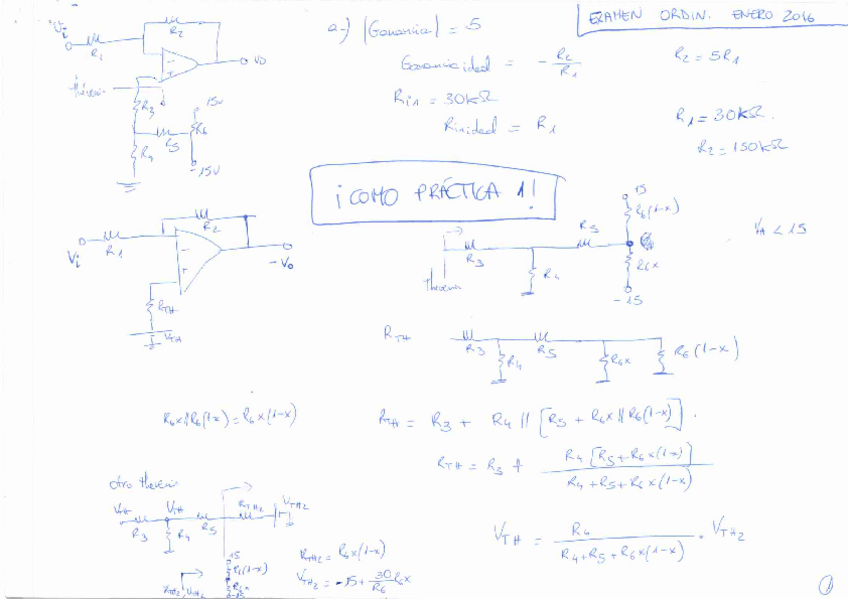 EXAMEN ORDIN. ENERO 2016
a-) |Ganancia| = 5
Ganancia ideal = - R2/R1
R2 = 5R1
Ri1 = 30kΩ
Rin ideal = R1
R1 = 30kΩ.
R2 = 150kΩ
Vi
R1
R2
VO
thévenin
R3
15V
R6
R5
R4
-15V
¡COMO PRÁCTICA 1!
Vi
R1
R2
Vo
RTH
VTH
15
R6(1-x)
R5
R3
R4
R6x
-15
thevenin
VA < 15
RTH
R3
R4
R5
R6x
R6(1-x)
R6x||R6(1-x) = R6x(1-x)
RTH = R3 + R4 || [R5 + R6x || R6(1-x)].
RTH = R3 + R4[R5+R6x(1-x)] / R4+R5+R6x(1-x)
otro thevenin
VTH
VTH
R3
R4
R5
RTH2
VTH2
15
R6(1-x)
R6x
-15
RTH2, VTH2
RTH2 = R6x(1-x)
VTH2 = -15 + 30/R6 R6x
VTH = R4 / R4+R5+R6x(1-x) · VTH2
1